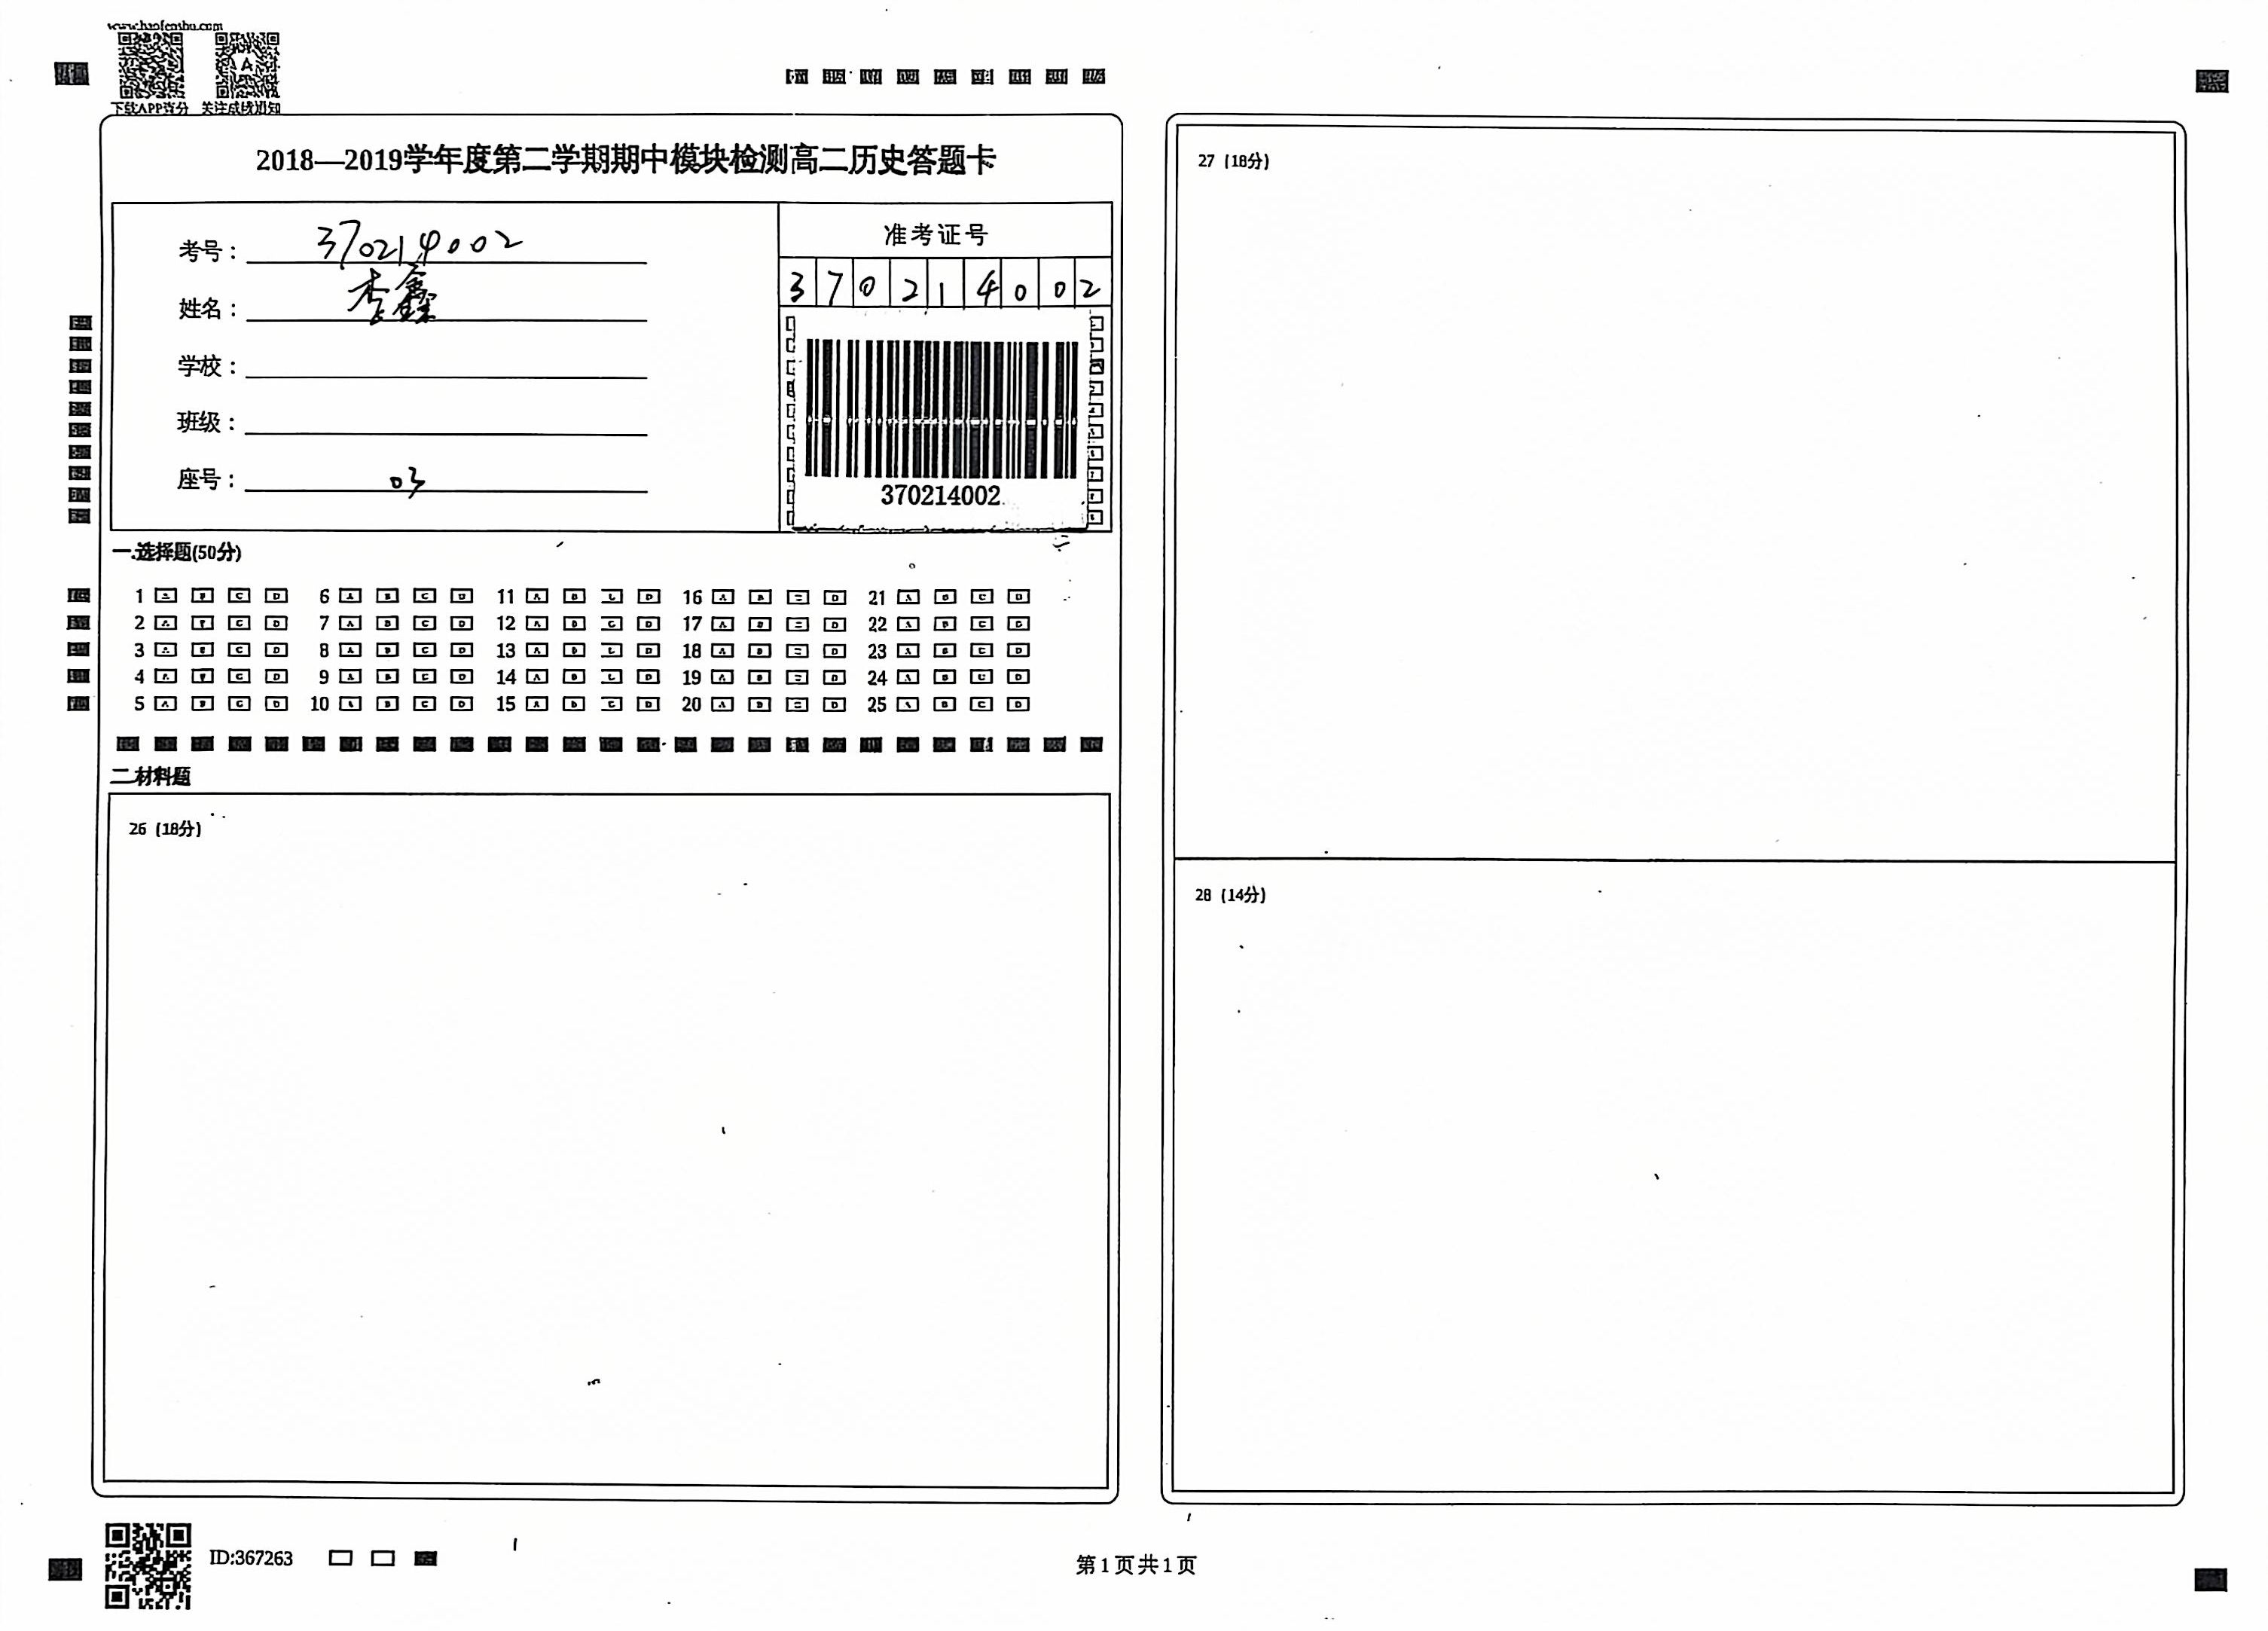 www.haofenshu.com
下载APP查分 关注成绩通知
2018—2019学年度第二学期期中模块检测高二历史答题卡
考号： 370214002
姓名： 李鑫
学校：
班级：
座号： 03
准考证号
3 7 0 2 1 4 0 0 2
370214002
一.选择题(50分)
1 A B C D 6 A B C D 11 A B C D 16 A B C D 21 A B C D
2 A B C D 7 A B C D 12 A B C D 17 A B C D 22 A B C D
3 A B C D 8 A B C D 13 A B C D 18 A B C D 23 A B C D
4 A B C D 9 A B C D 14 A B C D 19 A B C D 24 A B C D
5 A B C D 10 A B C D 15 A B C D 20 A B C D 25 A B C D
二.材料题
26 (18分)
27 (18分)
28 (14分)
ID:367263
第1页共1页